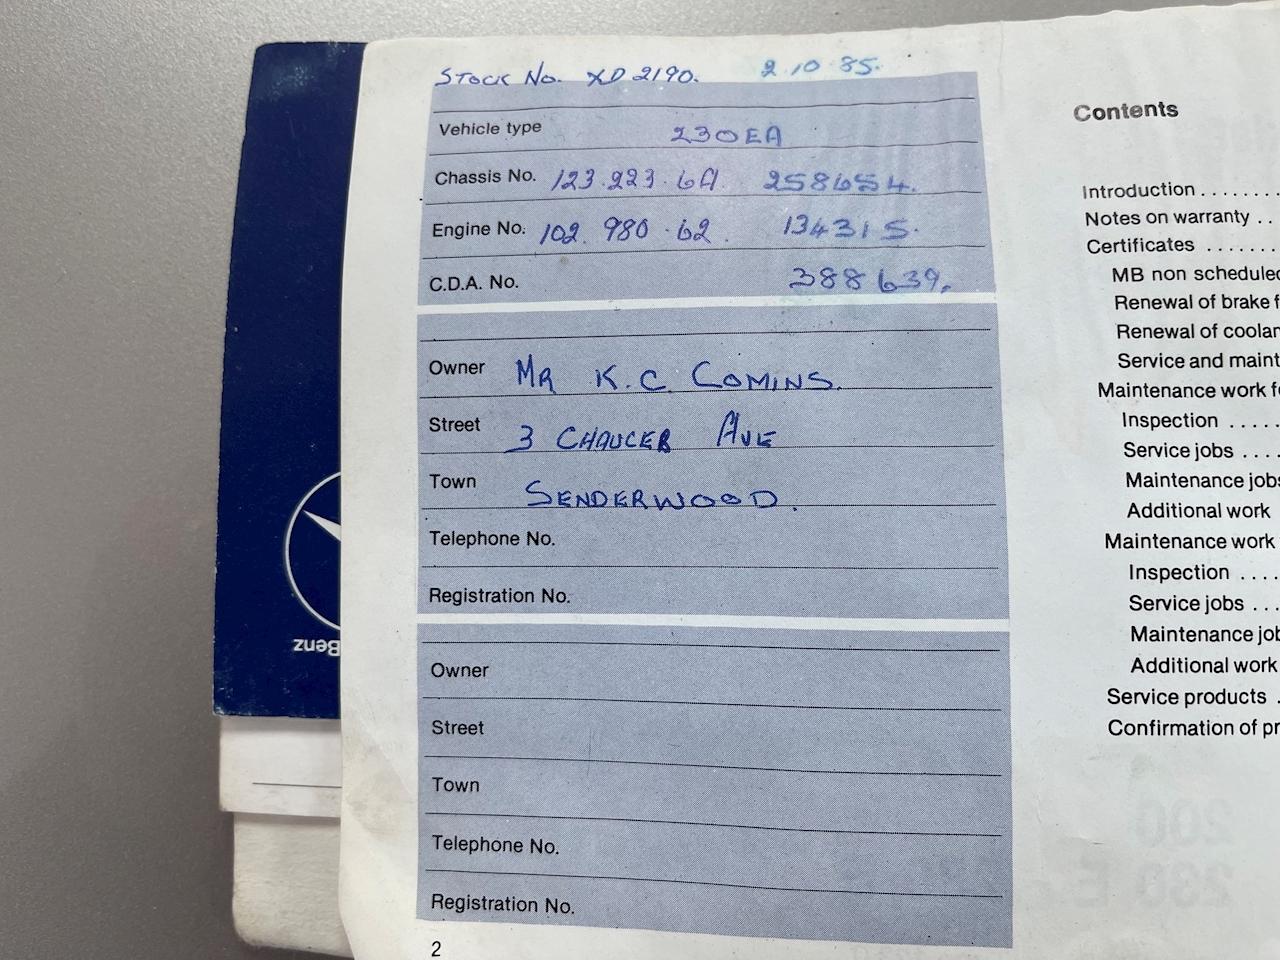 STOCK No. XD 2190. 2.10.85.
Vehicle type 230EA
Chassis No. 123.223.6A 258654.
Engine No. 102.980.62. 134315.
C.D.A. No. 388639.
Owner MR K.C. COMINS.
Street 3 CHAUCER AVE
Town SENDERWOOD.
Telephone No.
Registration No.
Owner
Street
Town
Telephone No.
Registration No.
2
Contents
Introduction ........
Notes on warranty ..
Certificates .......
MB non scheduled
Renewal of brake f
Renewal of coolan
Service and maint
Maintenance work fo
Inspection .....
Service jobs ....
Maintenance jobs
Additional work
Maintenance work
Inspection ....
Service jobs ...
Maintenance job
Additional work
Service products .
Confirmation of pr
Benz
200
230 E